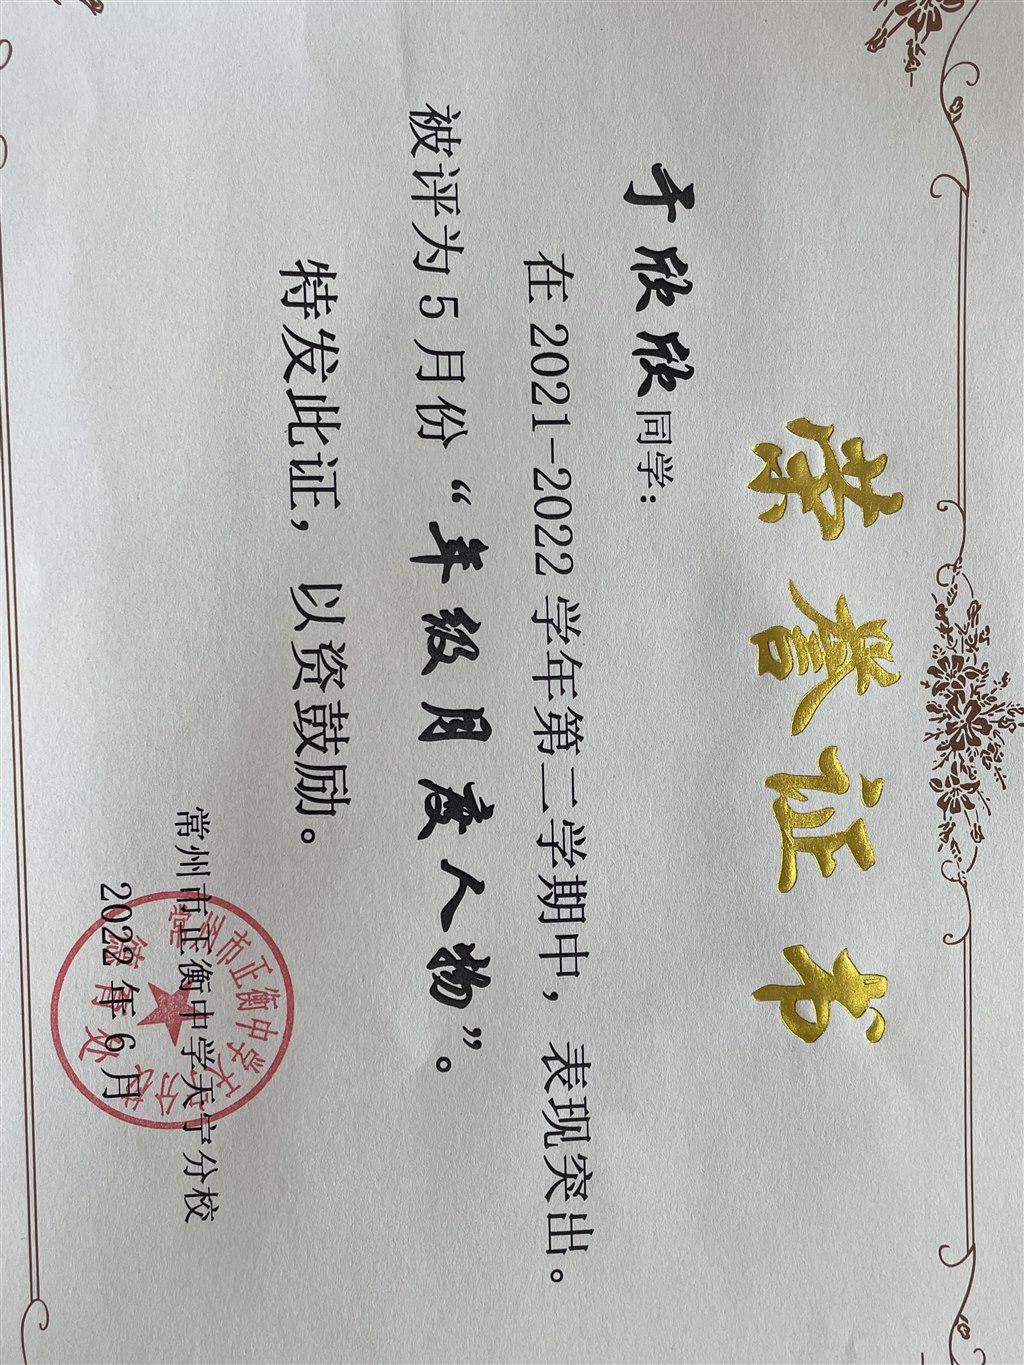 荣誉证书
于欣欣同学：
在2021-2022学年第二学期中，表现突出。
被评为5月份“年级月度人物”。
特发此证，以资鼓励。
常州市正衡中学天宁分校
2022年6月
常州市正衡中学天宁分校
德育处